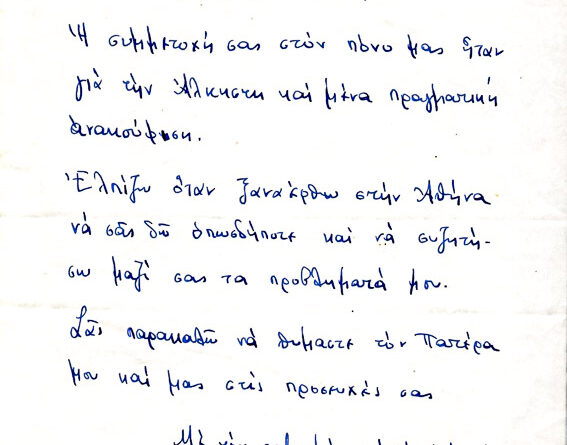 Ἡ συμμετοχή σας στὸν πόνο μας ἦταν
γιὰ τὴν Ἄλκηστη καὶ μένα πραγματική
ἀνακούφιση.
Ἐλπίζω ὅταν ξαναέρθω στὴν Ἀθήνα
νὰ σᾶς δῶ ὁπωσδήποτε καὶ νὰ συζητή-
σω μαζί σας τα προβλήματά μου.
Σᾶς παρακαλῶ νὰ θυμᾶστε τὸν Πατέρα
μου καὶ μας στὶς προσευχές σας
Μὲ